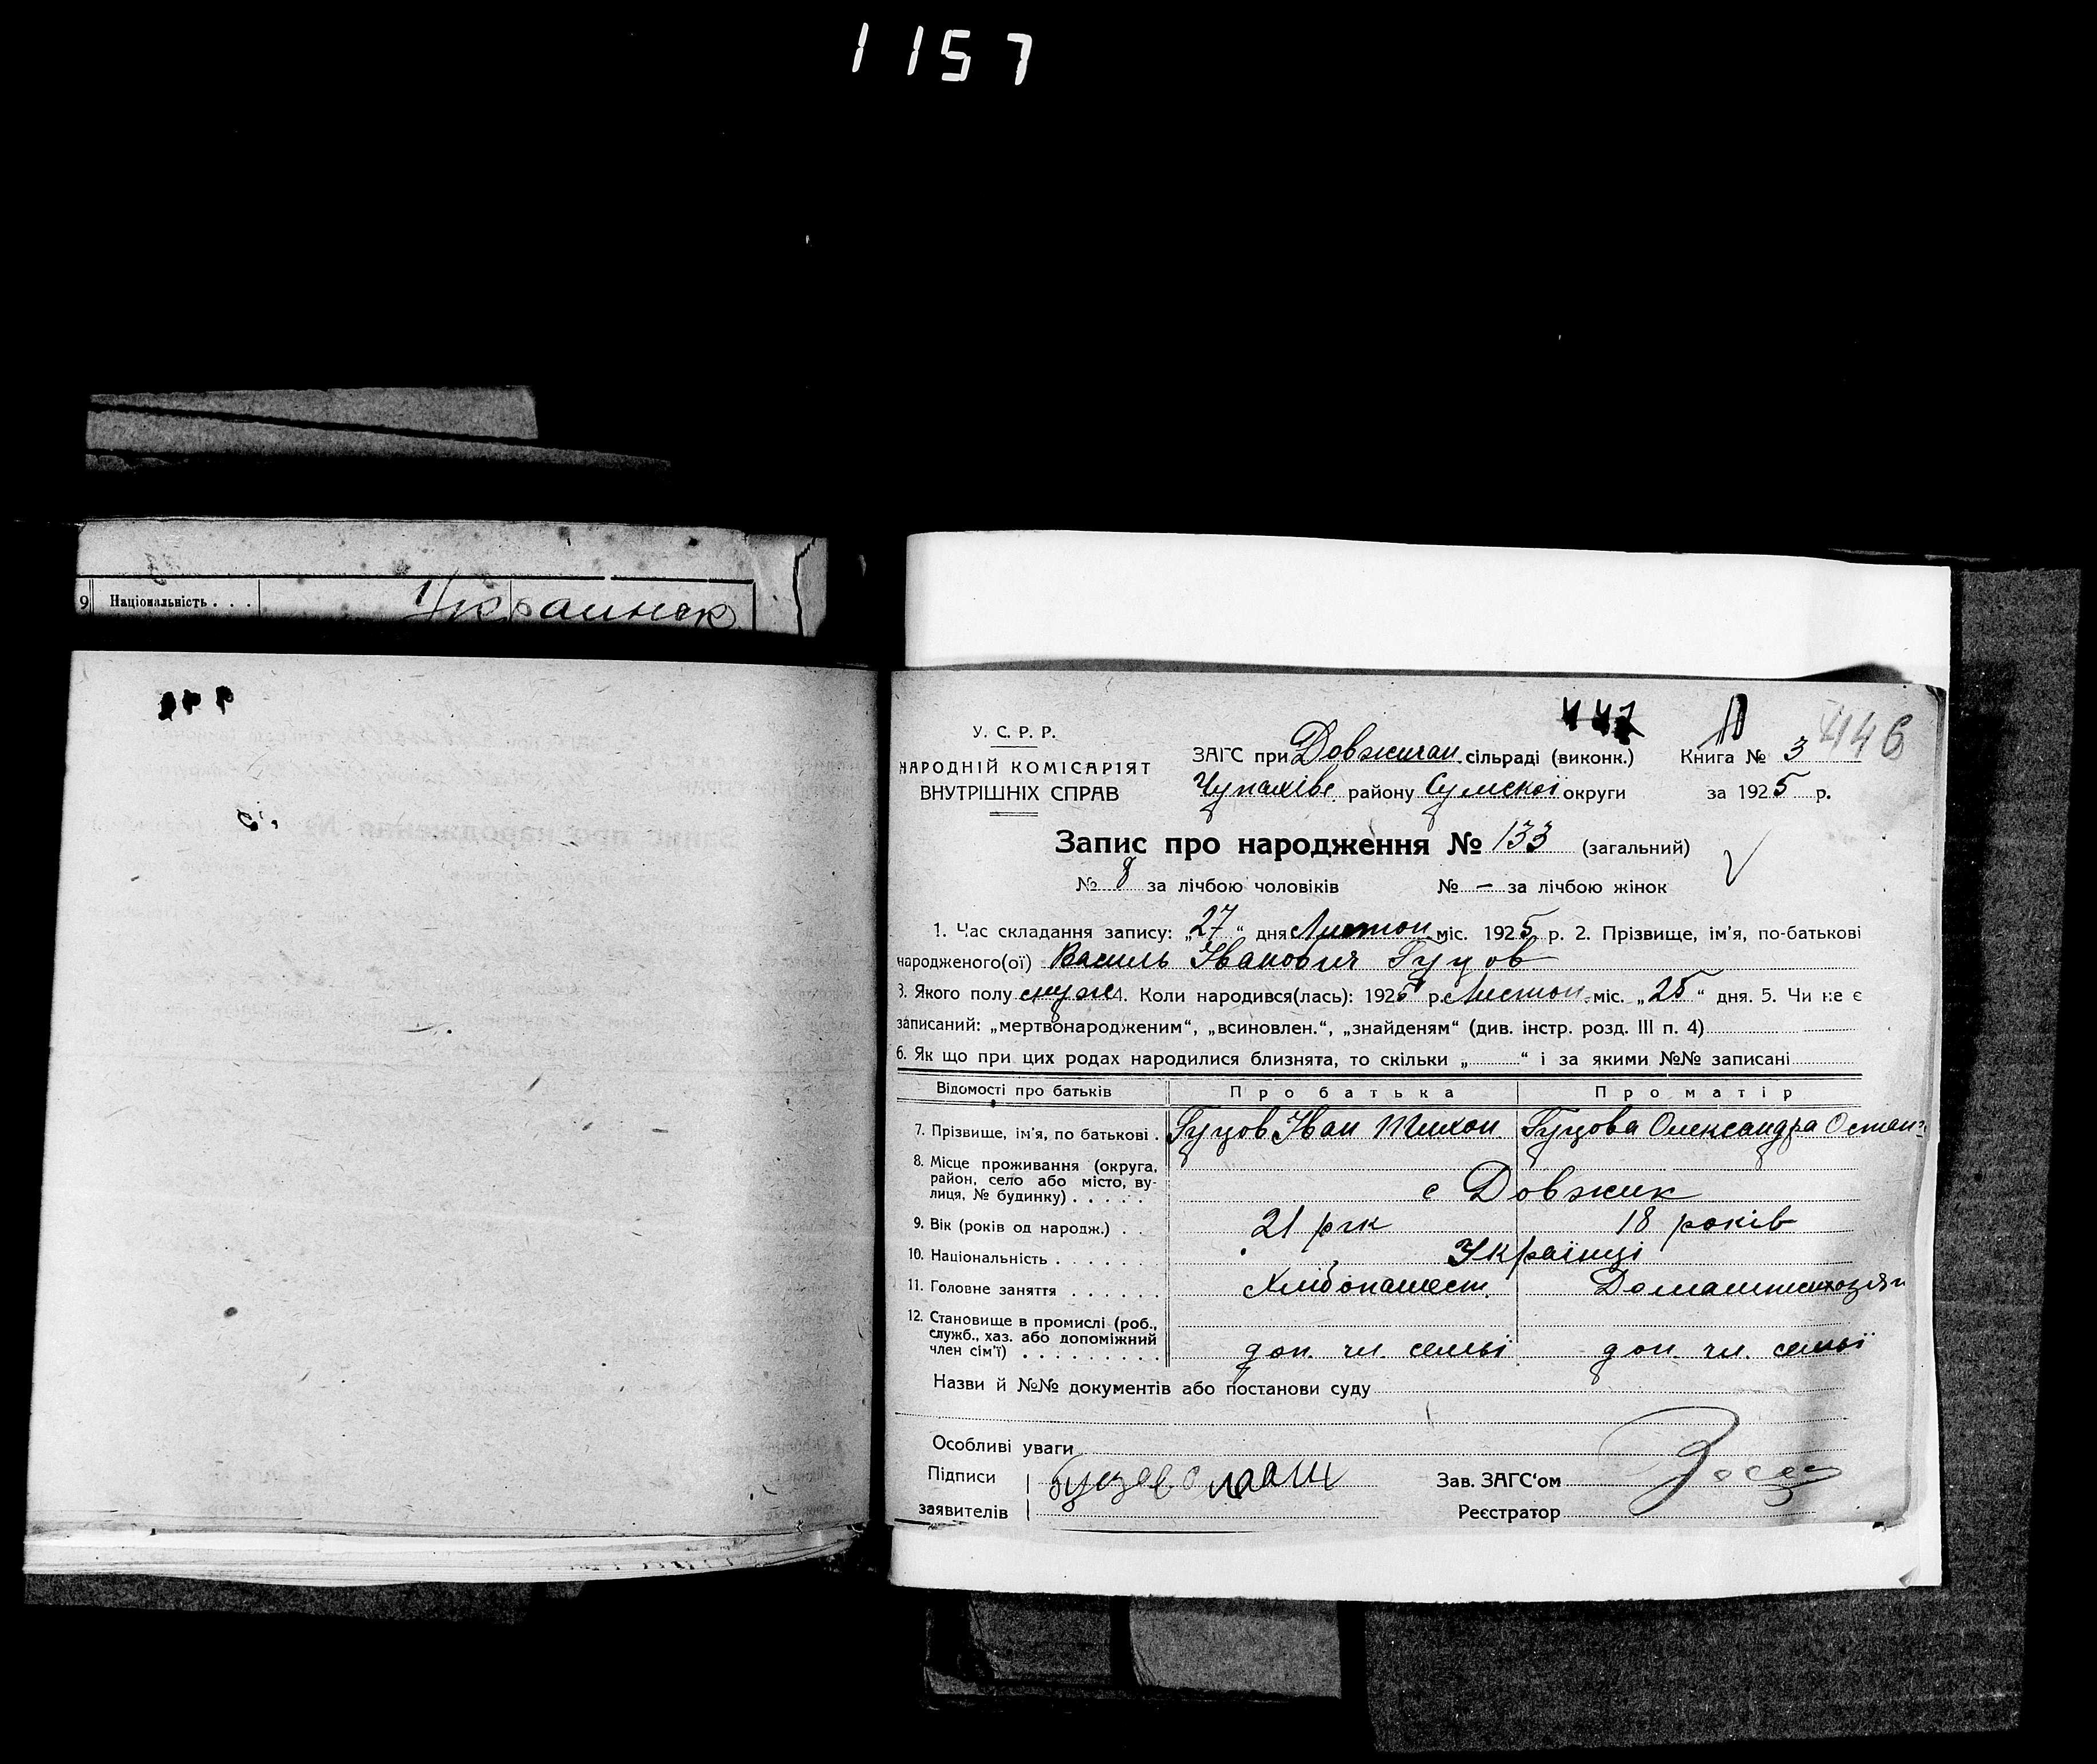 1157
9 Національність . . .
Украинск
У. С. Р. Р.
НАРОДНІЙ КОМІСАРІЯТ
ВНУТРІШНІХ СПРАВ
447
ЗАГС при Довжицан. сільраді (виконк.) Книга № 3 446
Чупахівс. району Сумської округи за 1925 р.
Запис про народження № 133 (загальний)
№ 8 за лічбою чоловіків № — за лічбою жінок
1. Час складання запису: „27“ дня Листоп. міс. 1925 р. 2. Прізвище, ім'я, по-батькові
народженого(ої) Василь Іванович Гуцов
3. Якого полу 4. Коли народився(лась): 1925 р. Листоп. міс. „25“ дня. 5. Чи не є
записаний: „мертвонародженим“, „всиновлен.“, „знайденям“ (див. інстр. розд. III п. 4)
6. Як що при цих родах народилися близнята, то скільки „ “ і за якими №№ записані
Відомості про батьків Про батька Про матір
7. Прізвище, ім'я, по батькові . Гуцов Іван Тихон Гуцова Олександра Остап
8. Місце проживання (округа,
район, село або місто, ву-
лиця, № будинку) . . . . . с Довжик
9. Вік (років од народж.) . . 21 рік 18 років
10. Національність . . . . . . Українці
11. Головне заняття . . . . . . Хлібопашест.
12. Становище в промислі (роб.,
служб., хаз. або допоміжний
член сім'ї) . . . . . . . . . доп. чл. семьї доп. чл. семьї
Назви й №№ документів або постанови суду
Особливі уваги
Підписи
Зав. ЗАГС'ом
заявителів
Реєстратор